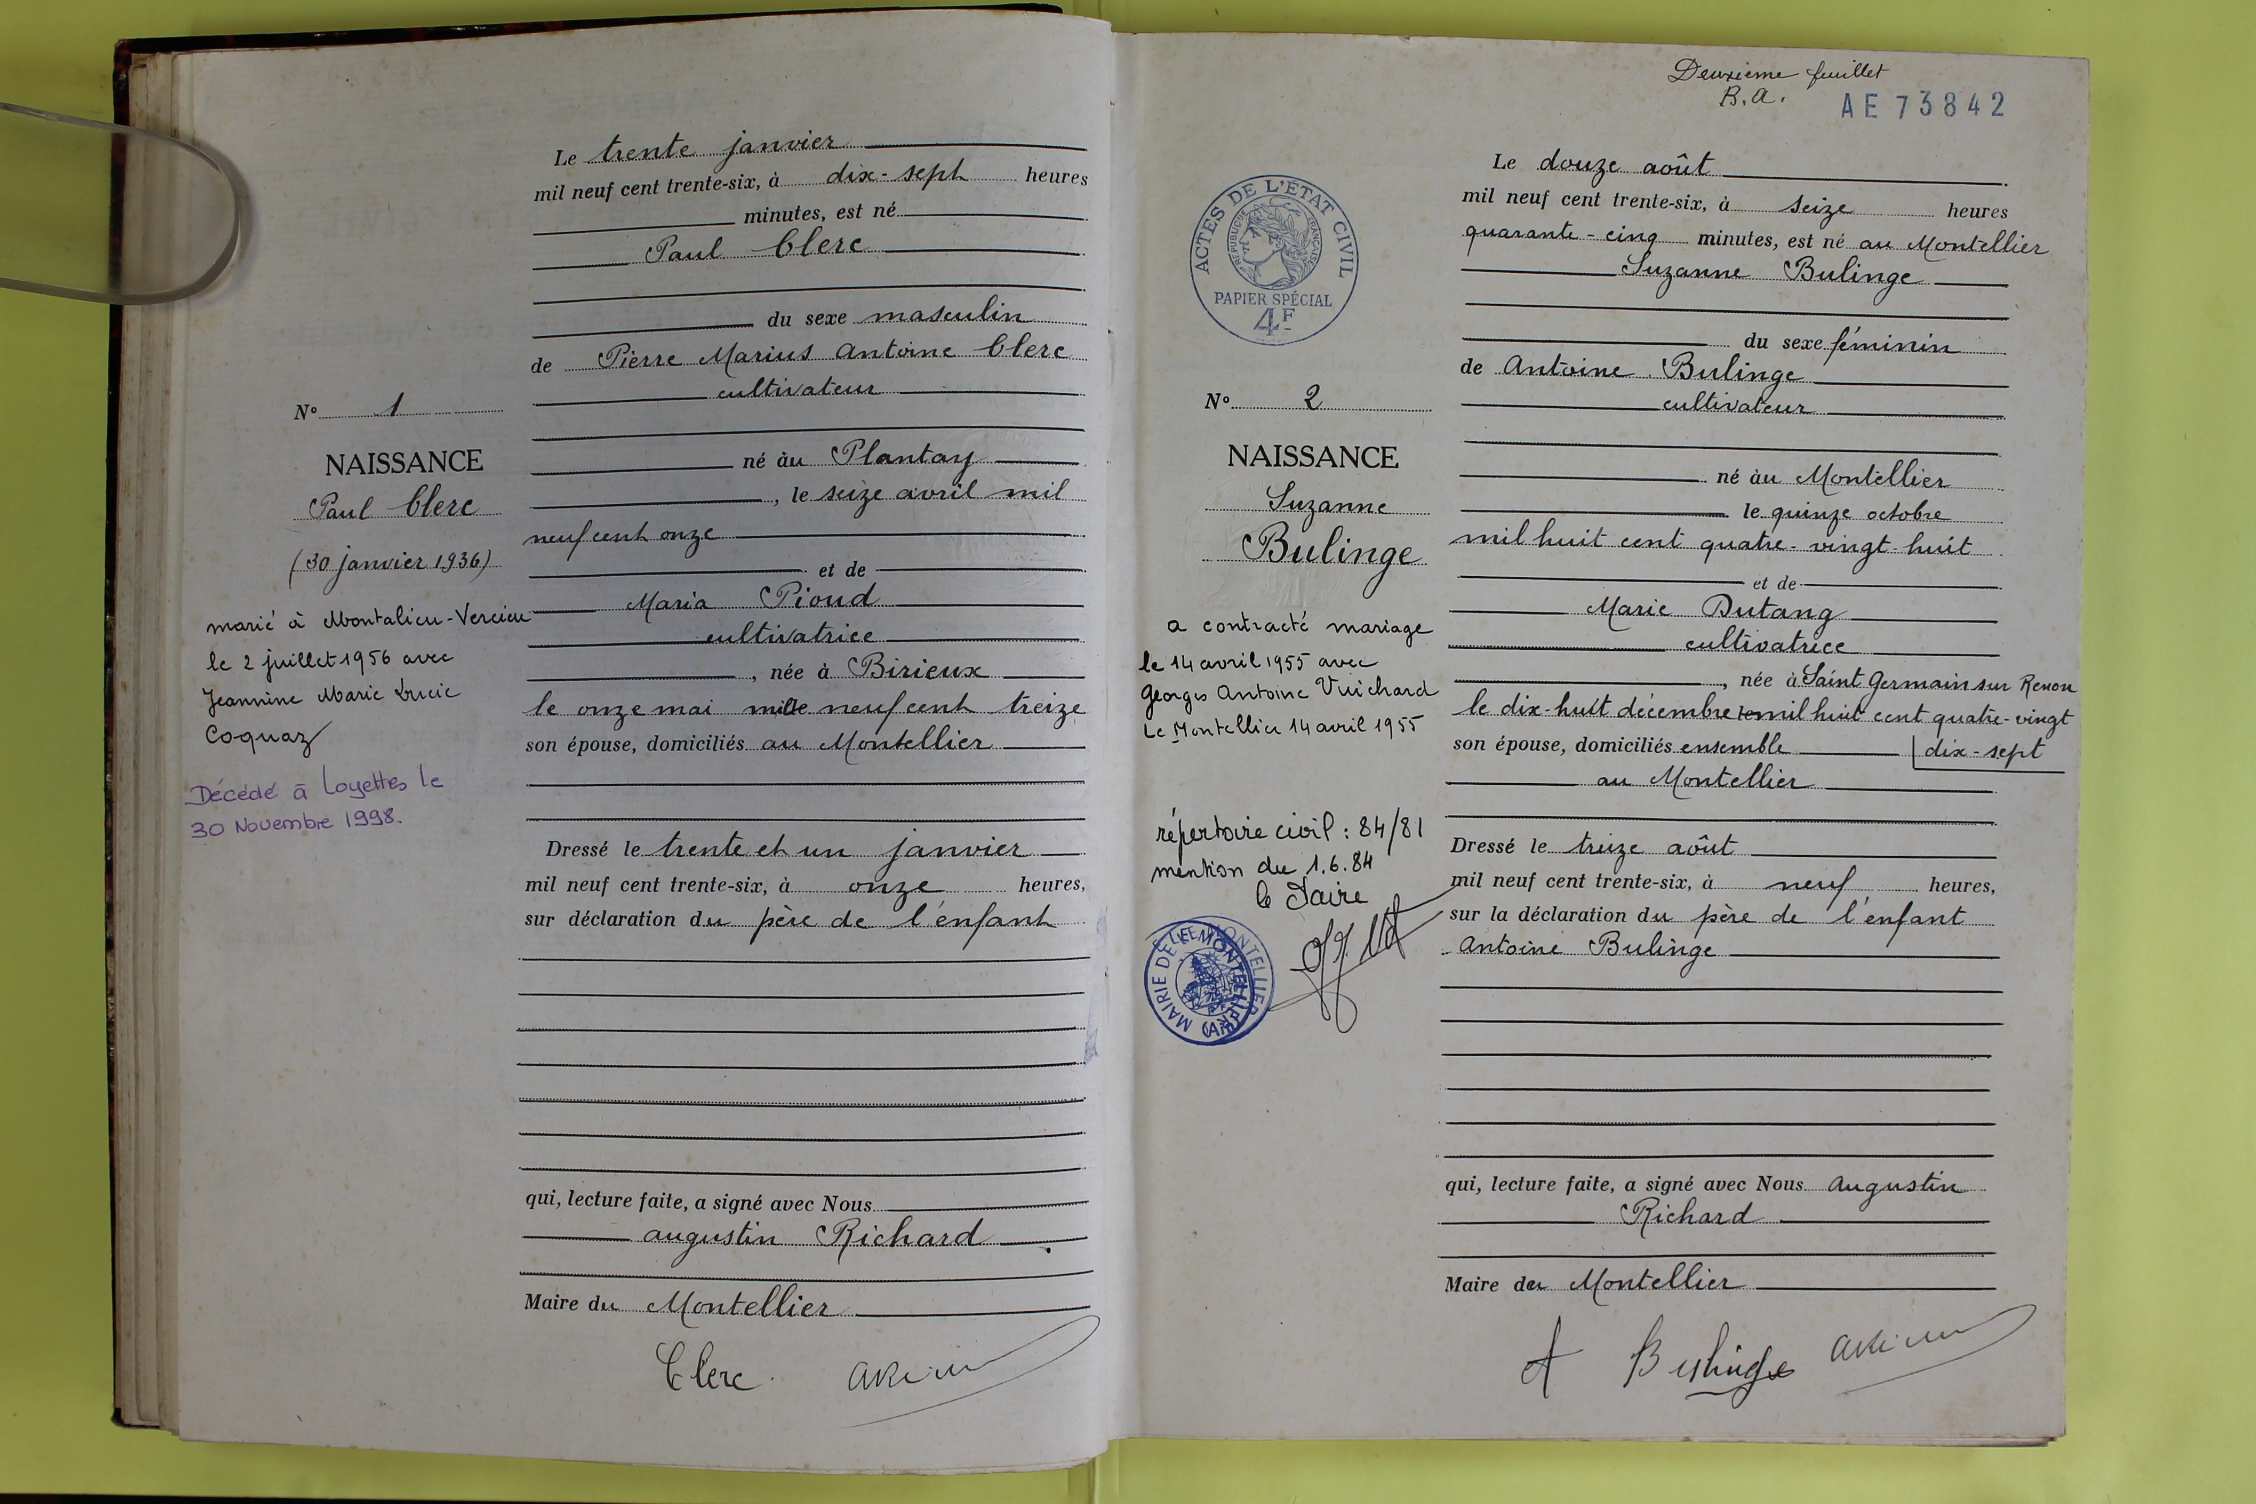 Le trente janvier
mil neuf cent trente-six, à dix-sept heures
minutes, est né
Paul Clerc
du sexe masculin
de Pierre Marius Antoine Clerc
cultivateur
né àu Plantay
, le seize avril mil
neuf cent onze
et de
Maria Pioud
cultivatrice
, née à Birieux
le onze mai mille neuf cent treize
son épouse, domiciliés au Montellier
Dressé le trente et un janvier
mil neuf cent trente-six, à onze heures,
sur déclaration du père de l'enfant
qui, lecture faite, a signé avec Nous
Augustin Richard
Maire du Montellier
Clerc
N° 1
NAISSANCE
Paul Clerc
(30 janvier 1936)
marié à Montalieu-Vercieu
le 2 juillet 1956 avec
Jeannine Marie Lucie
Coquaz
Décédé à Loyettes le
30 Novembre 1998.
Deuxième feuillet
B.A.
AE 73842
ACTES DE L'ETAT CIVIL
REPUBLIQUE FRANÇAISE
PAPIER SPÉCIAL
4F
Le douze août
mil neuf cent trente-six, à seize heures
quarante-cinq minutes, est né au Montellier
Suzanne Bulinge
du sexe féminin
de Antoine Bulinge
cultivateur
né àu Montellier
le quinze octobre
mil huit cent quatre-vingt-huit
et de
Marie Dutang
cultivatrice
, née à Saint Germain sur Renon
le dix-huit décembre mil huit cent quatre-vingt
dix-sept
son épouse, domiciliés ensemble
au Montellier
Dressé le treize août
mil neuf cent trente-six, à neuf heures,
sur la déclaration du père de l'enfant
Antoine Bulinge
qui, lecture faite, a signé avec Nous Augustin
Richard
Maire du Montellier
A Bulinge
N° 2
NAISSANCE
Suzanne
Bulinge
a contracté mariage
le 14 avril 1955 avec
Georges Antoine Vuichard
Le Montellier 14 avril 1955
répertoire civil : 84/81
mention du 1.6.84
le Maire
MAIRIE DE LE MONTELLIER (AIN)